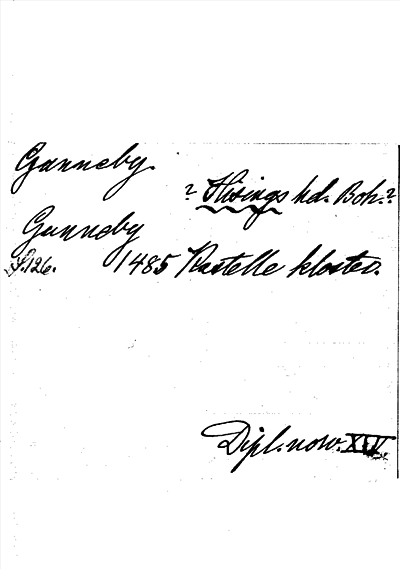 Gunneby.
? Hisings hd. Boh.?
Gunneby
S.126. 1485 Kastelle kloster.
Dipl. norv. XIV.